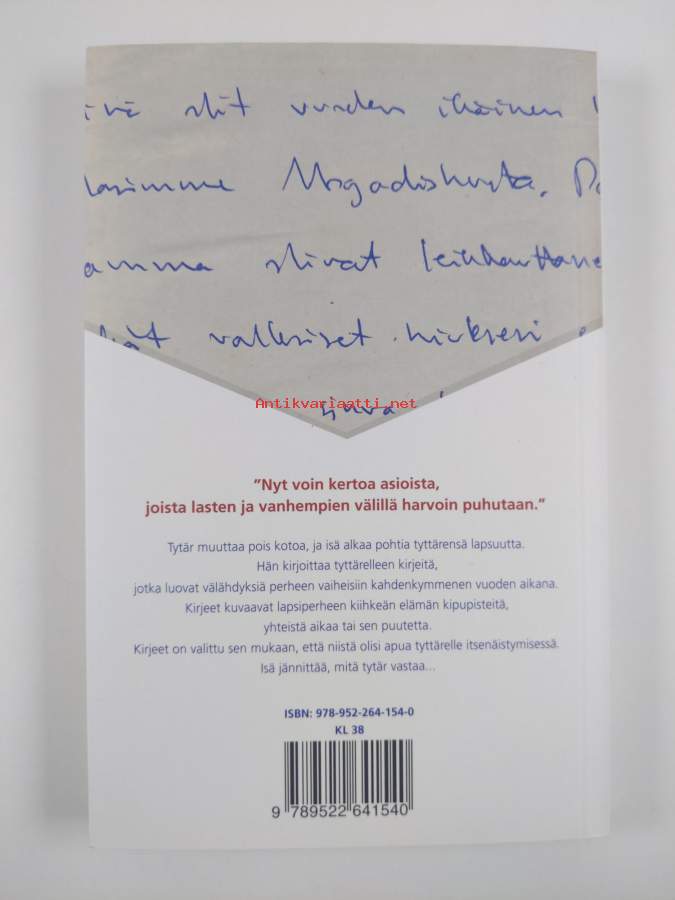 olit vuoden ikäinen
Mogadishusta.
amma olivat leikkauttane
valkoiset hiuksesi
Antikvariaatti.net
"Nyt voin kertoa asioista,
joista lasten ja vanhempien välillä harvoin puhutaan."
Tytär muuttaa pois kotoa, ja isä alkaa pohtia tyttärensä lapsuutta.
Hän kirjoittaa tyttärelleen kirjeitä,
jotka luovat välähdyksiä perheen vaiheisiin kahdenkymmenen vuoden aikana.
Kirjeet kuvaavat lapsiperheen kiihkeän elämän kipupisteitä,
yhteistä aikaa tai sen puutetta.
Kirjeet on valittu sen mukaan, että niistä olisi apua tyttärelle itsenäistymisessä.
Isä jännittää, mitä tytär vastaa...
ISBN: 978-952-264-154-0
KL 38
9 789522 641540